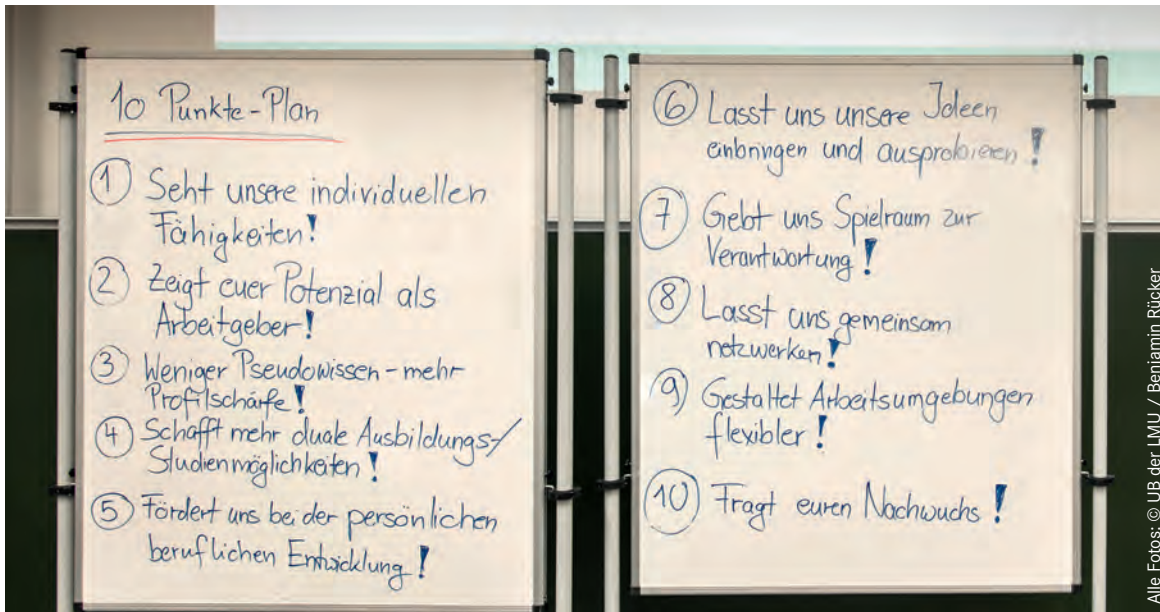 10 Punkte-Plan
1 Seht unsere individuellen
Fähigkeiten!
2 Zeigt euer Potenzial als
Arbeitgeber!
3 Weniger Pseudowissen - mehr
Profilschärfe!
4 Schafft mehr duale Ausbildungs-/
Studienmöglichkeiten!
5 Fördert uns bei der persönlichen
beruflichen Entwicklung!
6 Lasst uns unsere Ideen
einbringen und ausprobieren!
7 Gebt uns Spielraum zur
Verantwortung!
8 Lasst uns gemeinsam
netzwerken!
9 Gestaltet Arbeitsumgebungen
flexibler!
10 Fragt euren Nachwuchs!
Alle Fotos: © UB der LMU / Benjamin Rücker